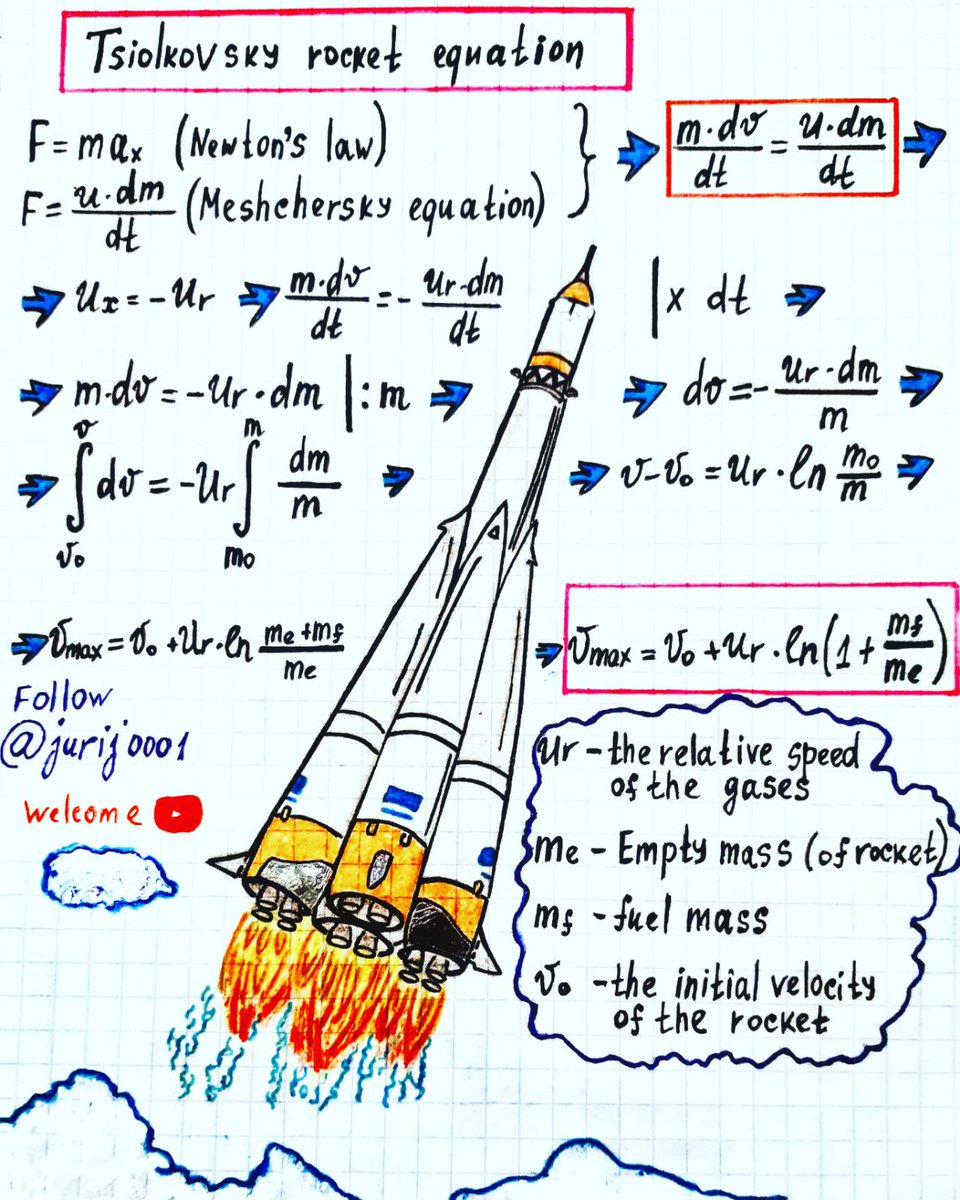 Tsiolkovsky rocket equation
F = maₓ (Newton's law)
F = u·dm/dt (Meshchersky equation)
} ➡ m·dv/dt = u·dm/dt ➡
➡ uₓ = -ur ➡ m·dv/dt = - ur·dm/dt | x dt ➡
➡ m·dv = -ur·dm |:m ➡ ➡ dv = - ur·dm/m ➡
➡ ∫ᵥ₀ᵛ dv = -ur ∫ₘ₀ᵐ dm/m ➡ ➡ v-v₀ = ur·ln m₀/m ➡
➡ vmax = v₀ + ur·ln (me+mf)/me ➡ vmax = v₀ + ur·ln(1 + mf/me)
Follow
@jurij0001
Welcome
ur - the relative speed
of the gases
me - Empty mass (of rocket)
mf - fuel mass
v₀ - the initial velocity
of the rocket